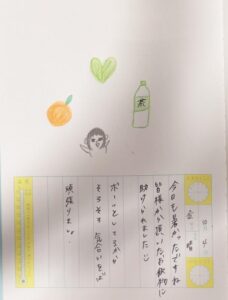 月 4 日
金 曜
今日も暑かったですね
皆様から頂いたお飲物に
助けられました
ボーッとしてるから
そろそろ 気合いいれて
頑張りまし。
茶